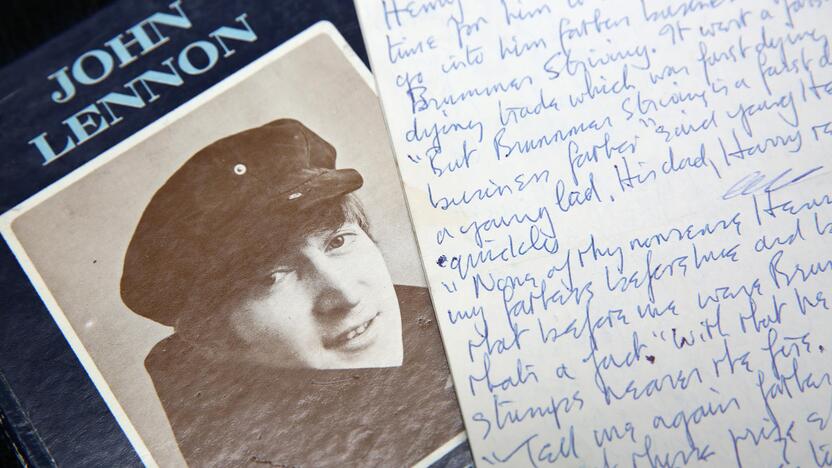 JOHN
LENNON
Henry
time for him to
go into him father business
Brummer Striving. It want a
dying trade which was fast dying
"But Brummer Striving is a fast d
business father" said young He
a young lad. His dad, Harry
quickly
"None of thy nonsense Henr
my fathers before me and
that before me were Brum
thats a fact" with that he
stumps nearer the fire.
"Tell me again father